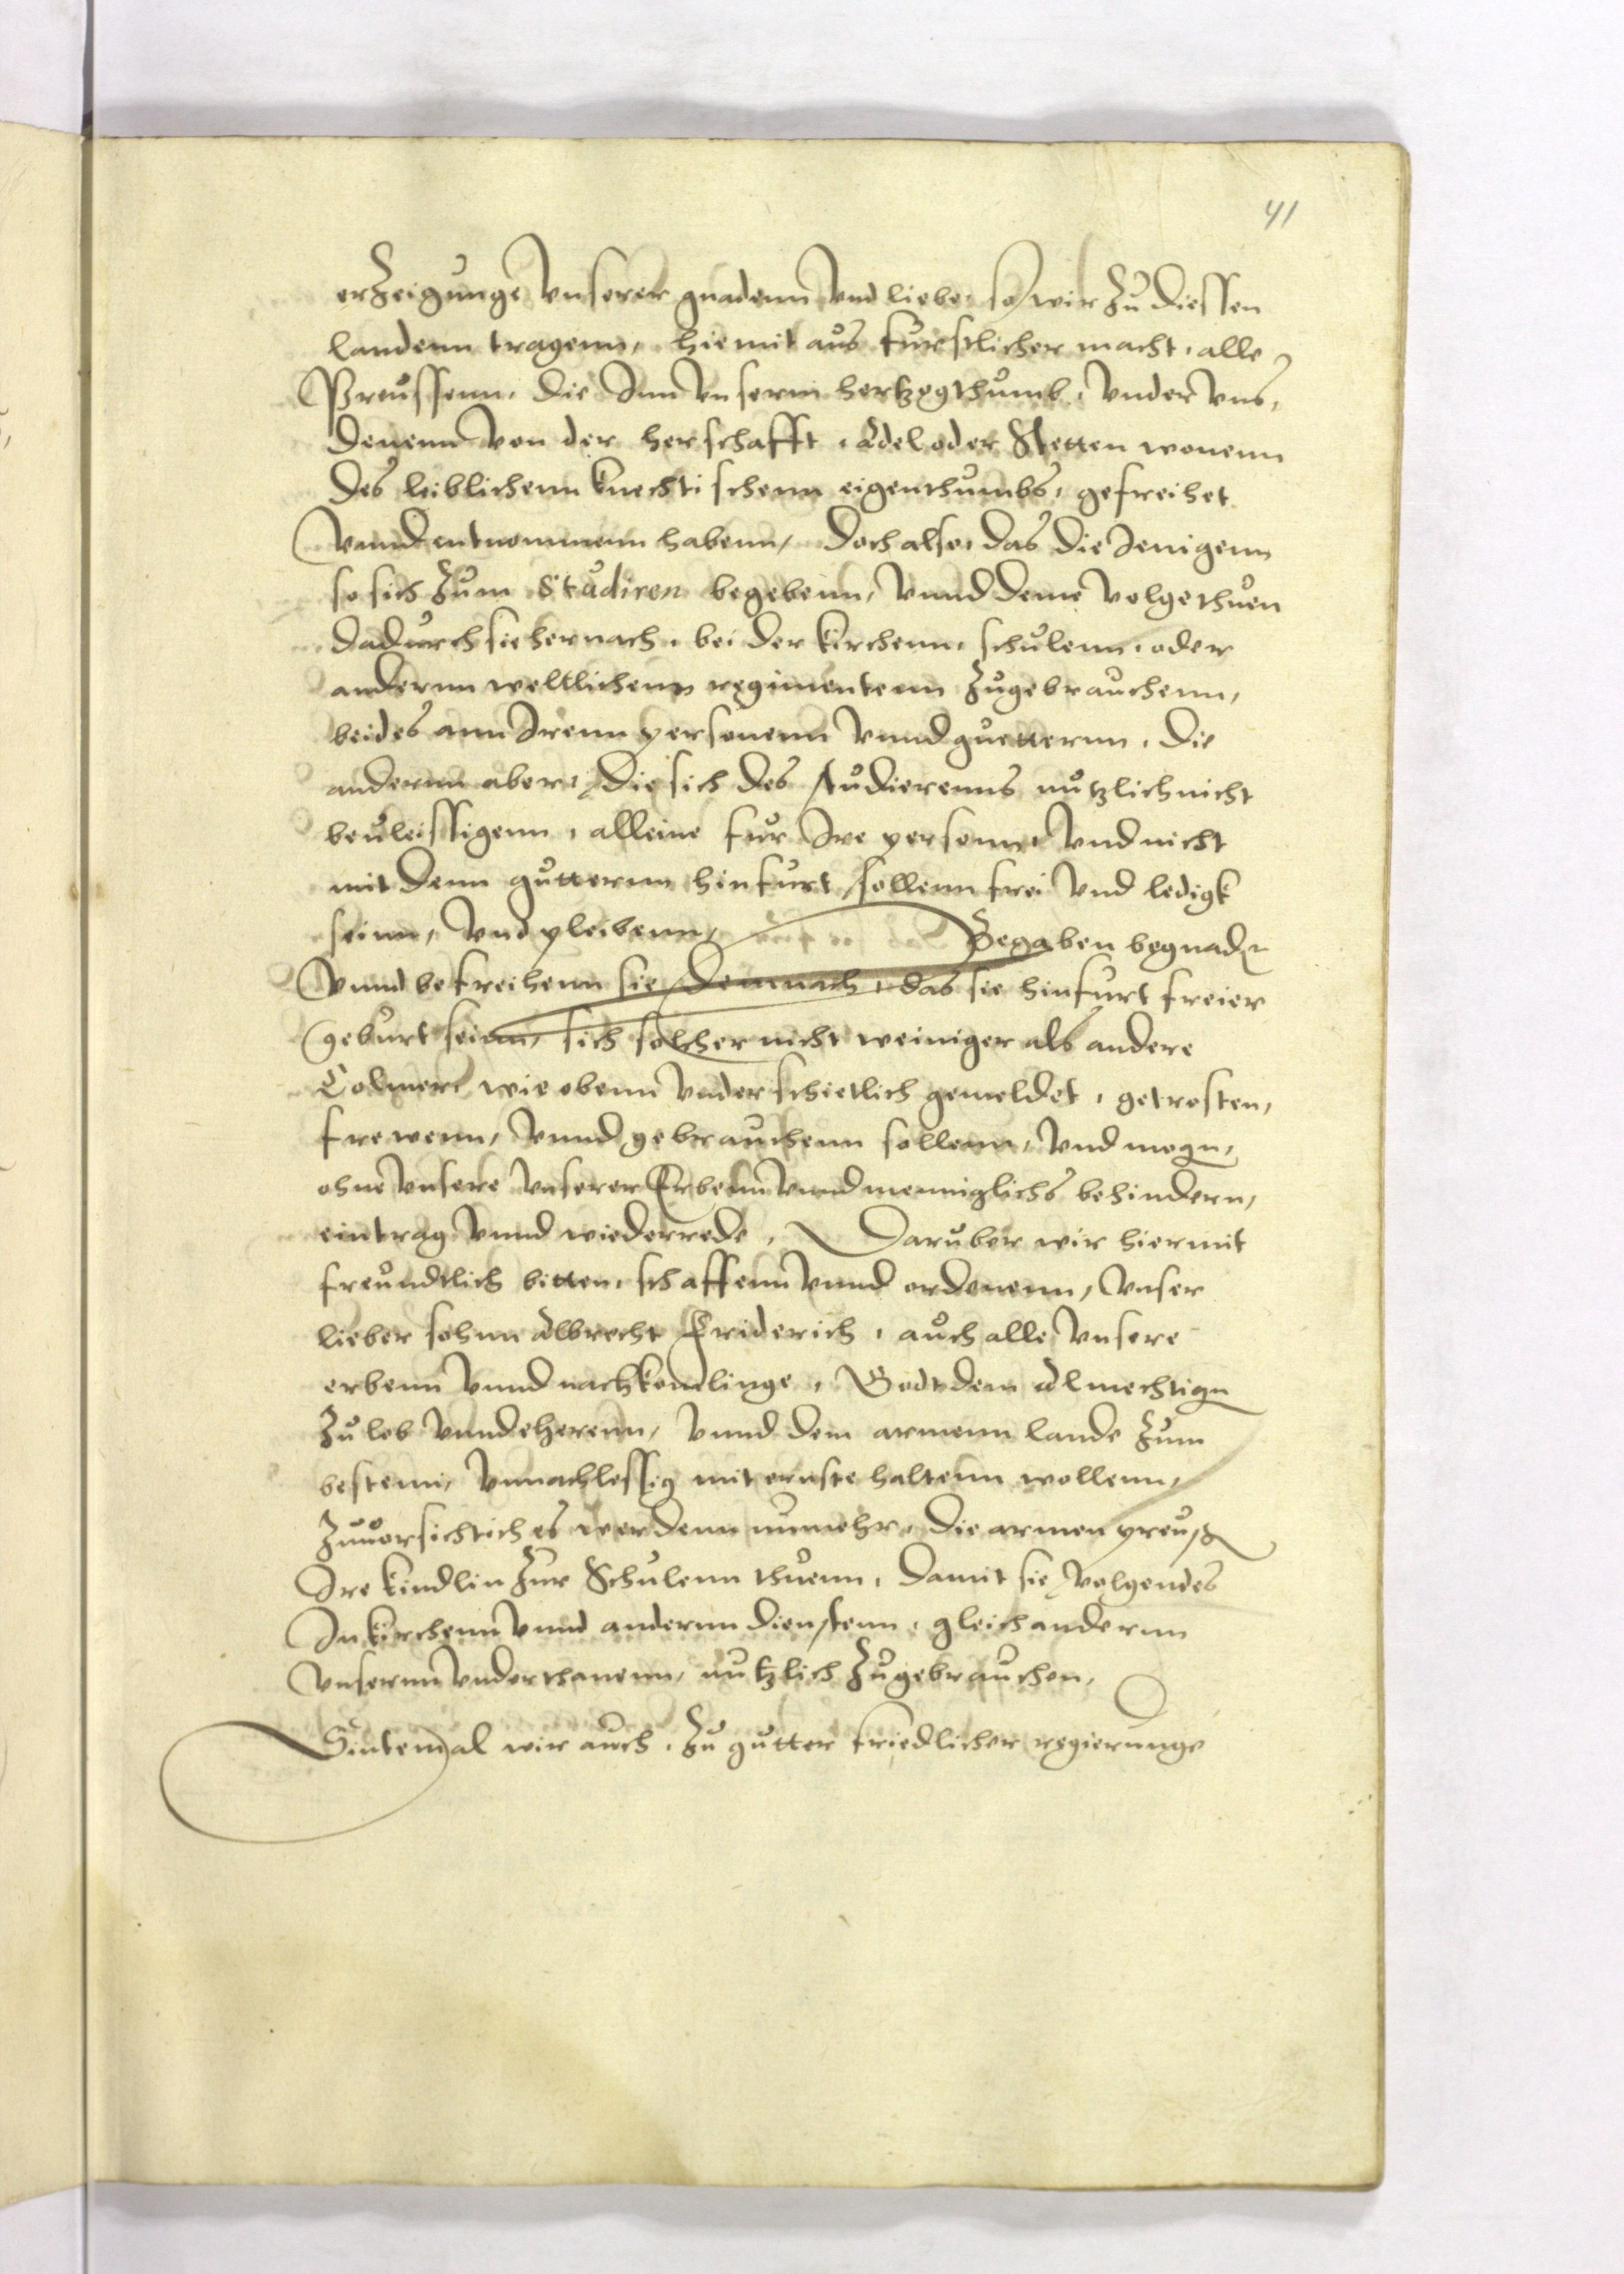 41
erzeigunge vnserer gnadenn vnd liebe, so wir zu diessen
landenn tragenn, hiemit aus furstlicher macht, alle
Preussenn, die Inn vnserm hertzogthumb, vnder vns,
denenn von der herschafft, Adel oder Stetten wonenn
des leiblichenn knechtischenn eigenthumbs, gefreihet
vnnd entnommenn habenn, doch also, das die Jenigenn
so sich zum Studiren begebenn, vnnd deme volge thuen
dadurch sie hernach, bei der kirchenn, schulenn, oder
andernn weltlichenn regimentenn zugebrauchenn,
beides ann Irenn personenn vnnd guetternn, die
andernn aber, die sich des studierenns nutzlich nicht
beuleissigenn, alleine fur Ire personn, vnd nicht
mit denn gutternn hinfurt sollenn frei vnd ledigk
seinn, vnd pleibenn, Begaben begnaden
vnnd befreihenn sie demnach, das sie hinfurt freier
geburt seienn, sich solcher nicht weiniger als andere
Colmer, wie obenn vnderschietlich gemeldet, getrosten,
frewenn, vnnd gebrauchenn sollenn, vnd mogen,
ohne vnsere vnserer Erbenn vnnd menniglichs behindern,
eintrag vnnd wiederrede, Daruber wir hiermit
freundtlich bitten, schaffenn vnnd ordenenn, vnser
lieber sohnn Albrecht Friderich, auch alle vnsere
erbenn vnnd nachkomlinge, Godt dem Almechtigen
zu lob vnnd eherenn, vnnd dem armenn lande zum
bestenn, vnnachlessig mit ernste haltenn wollenn,
zuuorsichtich es werdenn nunmehr, die armen preussen
Ire kindlin zur Schulenn thuenn, damit sie volgendes
In kirchenn vnnd andernn dienstenn, gleich andernn
vnsernn vnderthanenn, nutzlich zugebrauchen,
Sintemal wir auch, zu gutter friedlicher regierunge